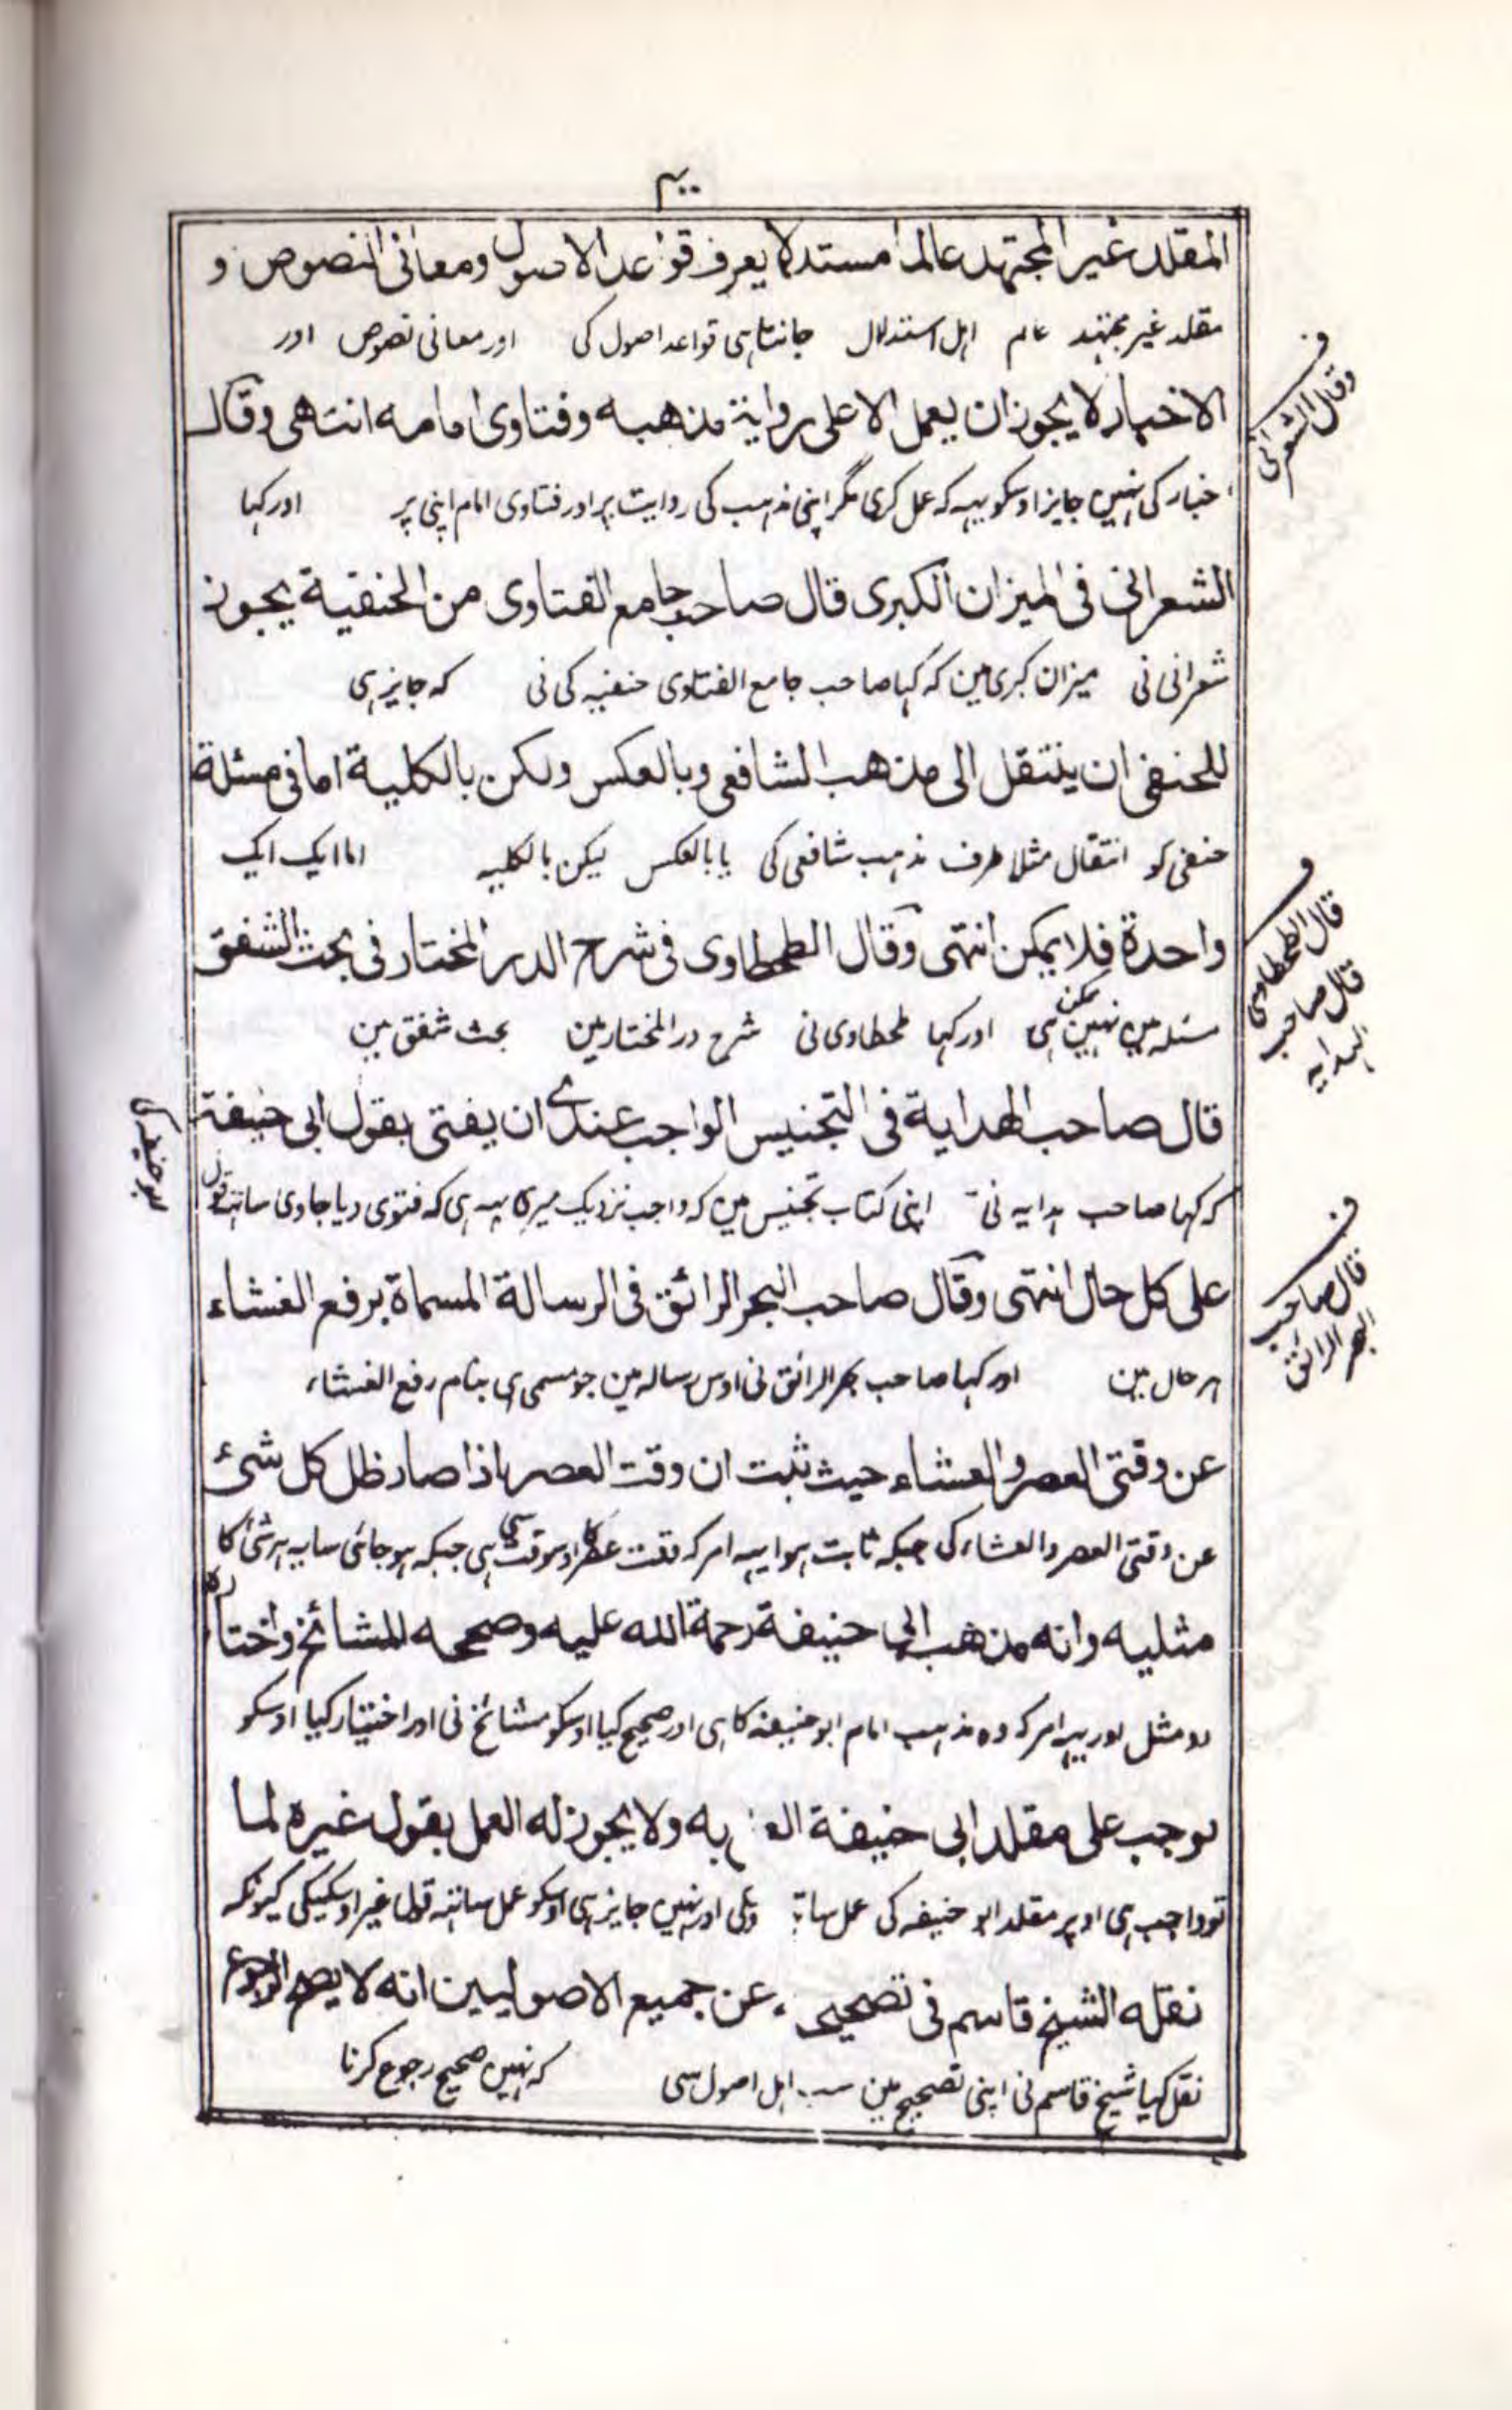 المقلد غير المجتهد عالما مستدلا يعرف قواعد الاصول ومعانی النصوص و
مقلد غیر مجتہد عالم اہل استدلال جانتا ہی قواعد اصول کی اور معانی نصوص اور
الاخبار لا يجوز ان يعمل الا على رواية مذهبه وفتاوى امامه انتهى وقال
اخبار کی نہیں جایز اوسکو یہہ کہ عمل کری مگر اپنی مذہب کی روایت پر اور فتاوی امام اپنی پر اور کہا
وقال الشعرانی
الشعرانی فی الميزان الكبرى قال صاحب جامع الفتاوى من الحنفية يجوز
شعرانی نی میزان کبری مین کہ کہا صاحب جامع الفتاوی حنفیہ کی نی کہ جایز ہی
للحنفی ان ينتقل الى مذهب الشافعی وبالعكس ولكن بالكلية اما فی مسئلة
حنفی کو انتقال مثلا طرف مذہب شافعی کی یا بالعکس لیکن بالکلیہ اما ایک ایک
واحدة فلا يمكن انتهى وقال الطحطاوی فی شرح الدر المختار فی بحث الشفق
قال الطحطاوی
قال صاحب
الہدایہ
مسئلہ مین نہیں ممکن ہی اور کہا طحطاوی نی شرح در المختار مین بحث شفق مین
قال صاحب الهداية فی التجنيس الواجب عندی ان يفتى بقول ابی حنيفة
کہ کہا صاحب ہدایہ نی اپنی کتاب تجنیس مین کہ واجب نزدیک میری یہہ ہی کہ فتوی دیا جاوی ساتہہ قول
ابو حنیفہ کی
على كل حال انتهى وقال صاحب البحر الرائق فی الرسالة المسماة برفع الغشاء
قال صاحب
البحر الرائق
ہر حال مین اور کہا صاحب بحر الرائق نی اوس رسالہ مین جو مسمی ہی بنام رفع الغشاء
عن وقتی العصر والعشاء حيث ثبت ان وقت العصر اذا صار ظل كل شئ
عن وقتی العصر والعشاء کی جبکہ ثابت ہوا یہہ امر کہ وقت عصر کا اوسوقت سی ہی جبکہ ہو جائی سایہ ہر شئ کا
مثليه وانه مذهب ابی حنيفة رحمة الله عليه وصححه المشائخ واختاره
دو مثل اور یہہ امر کہ وہ مذہب امام ابو حنیفہ کا ہی اور صحیح کیا اوسکو مشائخ نی اور اختیار کیا اوسکو
وجب على مقلد ابی حنيفة به ولا يجوز له العمل بقول غيره لما
تو واجب ہی اوپر مقلد ابو حنیفہ کی عمل اور نہیں جایز ہی اوسکو عمل ساتہہ قول غیر اوسکیکی کیونکہ
نقله الشيخ قاسم فی تصحيحه عن جميع الاصوليين انه لا يصح الرجوع
نقل کیا شیخ قاسم نی اپنی تصحیح مین سب اہل اصول سی کہ نہیں صحیح رجوع کرنا